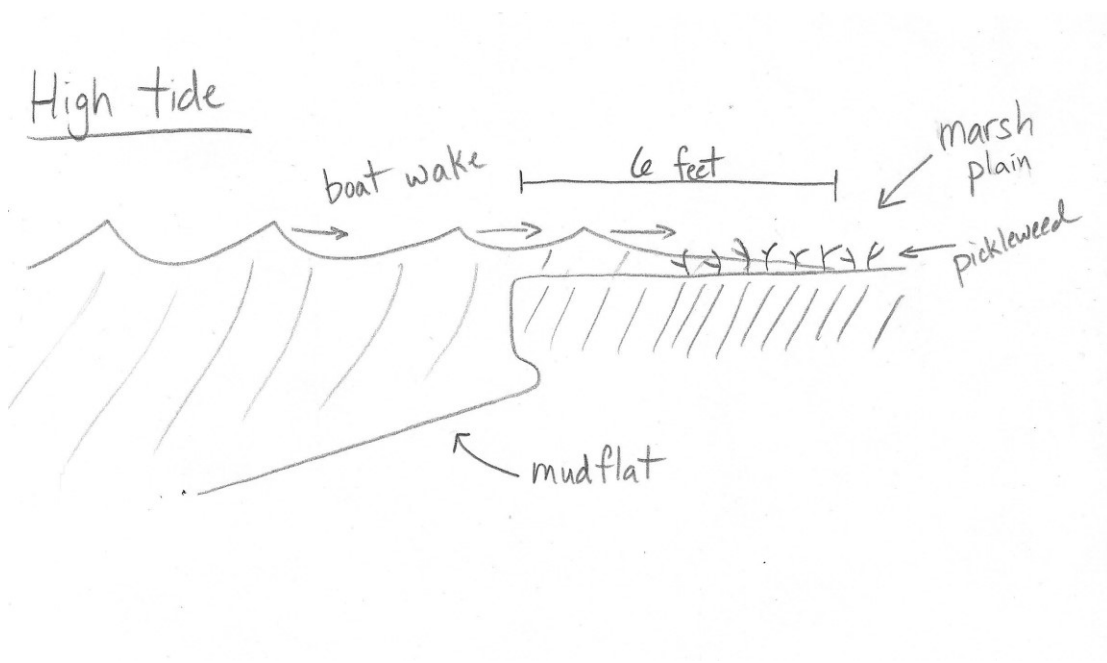 High tide
boat wake
6 feet
marsh
plain
pickleweed
mudflat